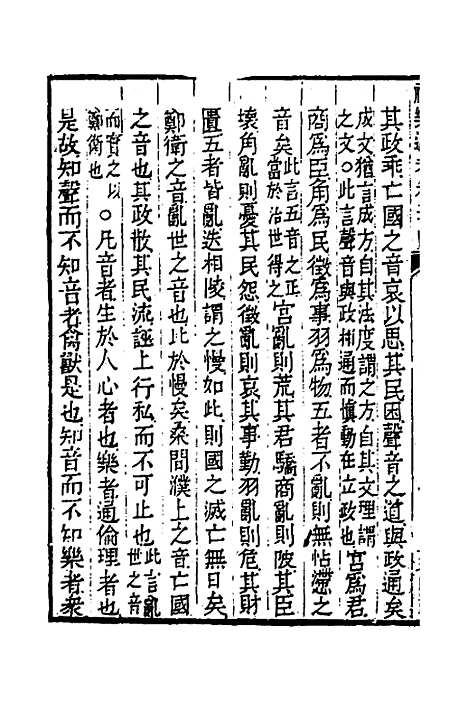 其政乖亡國之音哀以思其民困聲音之道與政通矣
成文猶言成方自其法度謂之方自其文理謂
之文○此言聲音與政相通而慎動在立政也宮為君
商為臣角為民徵為事羽為物五者不亂則無怗懘之
音矣此言五音之正當於治世得之宮亂則荒其君驕商亂則陂其臣
壞角亂則憂其民怨徵亂則哀其事勤羽亂則危其財
匱五者皆亂迭相陵謂之慢如此則國之滅亡無日矣
鄭衛之音亂世之音也比於慢矣桑間濮上之音亡國
之音也其政散其民流誣上行私而不可止也此言亂世之音
而實之以鄭衛也○凡音者生於人心者也樂者通倫理者也
是故知聲而不知音者禽獸是也知音而不知樂者衆